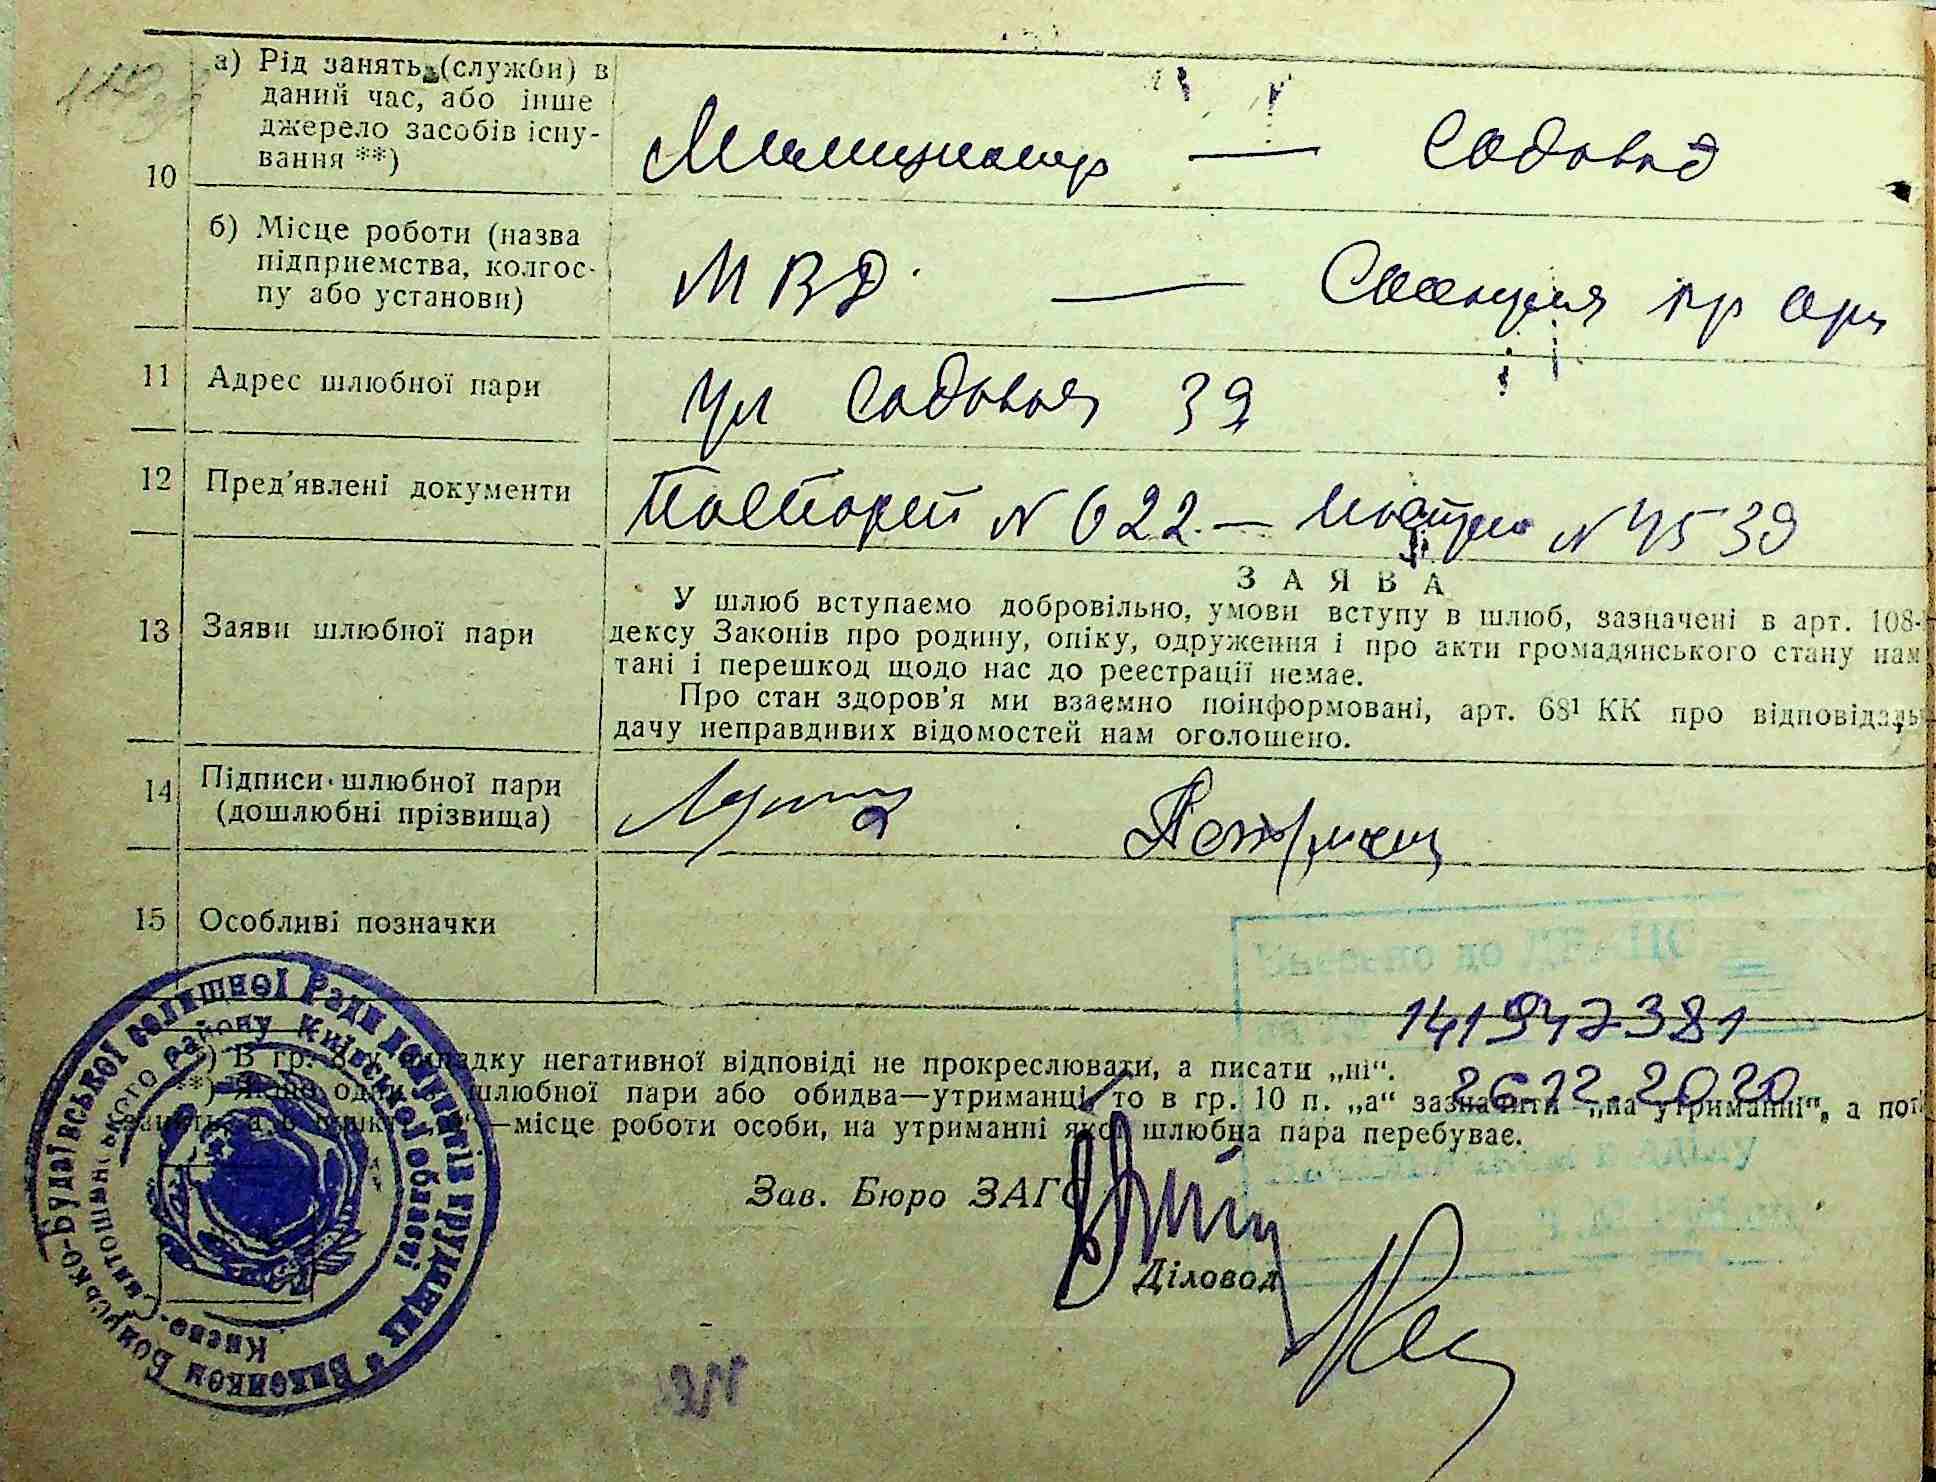 10
а) Рід занять (служби) в
даний час, або інше
джерело засобів існу-
вання **)
Милиционер — Садовод
б) Місце роботи (назва
підприємства, колгос-
пу або установи)
МВД — Станция
11 Адрес шлюбної пари
ул Садовая 39
12 Пред'явлені документи
Паспорт N 622 — N 4539
ЗАЯВА
13 Заяви шлюбної пари
У шлюб вступаємо добровільно, умови вступу в шлюб, зазначені в арт. 108-
дексу Законів про родину, опіку, одруження і про акти громадянського стану нам
тані і перешкод щодо нас до реєстрації немає.
Про стан здоров'я ми взаємно поінформовані, арт. 68¹ КК про відповідаль
дачу неправдивих відомостей нам оголошено.
14 Підписи шлюбної пари
(дошлюбні прізвища)
15 Особливі позначки
Внесено до ДРАЦС
141947381
26.12.2020
*) В гр. випадку негативної відповіді не прокреслювати, а писати „ні“.
**) Якщо один з шлюбної пари або обидва—утриманці, то в гр. 10 п. „а“ зазначити „на утриманні“, а
—місце роботи особи, на утриманні якої шлюбна пара перебуває.
Зав. Бюро ЗАГС
Діловод
Виконком Боярсько-Будаївської селищної Ради депутатів трудящих
Києво-Святошинського району Київської області